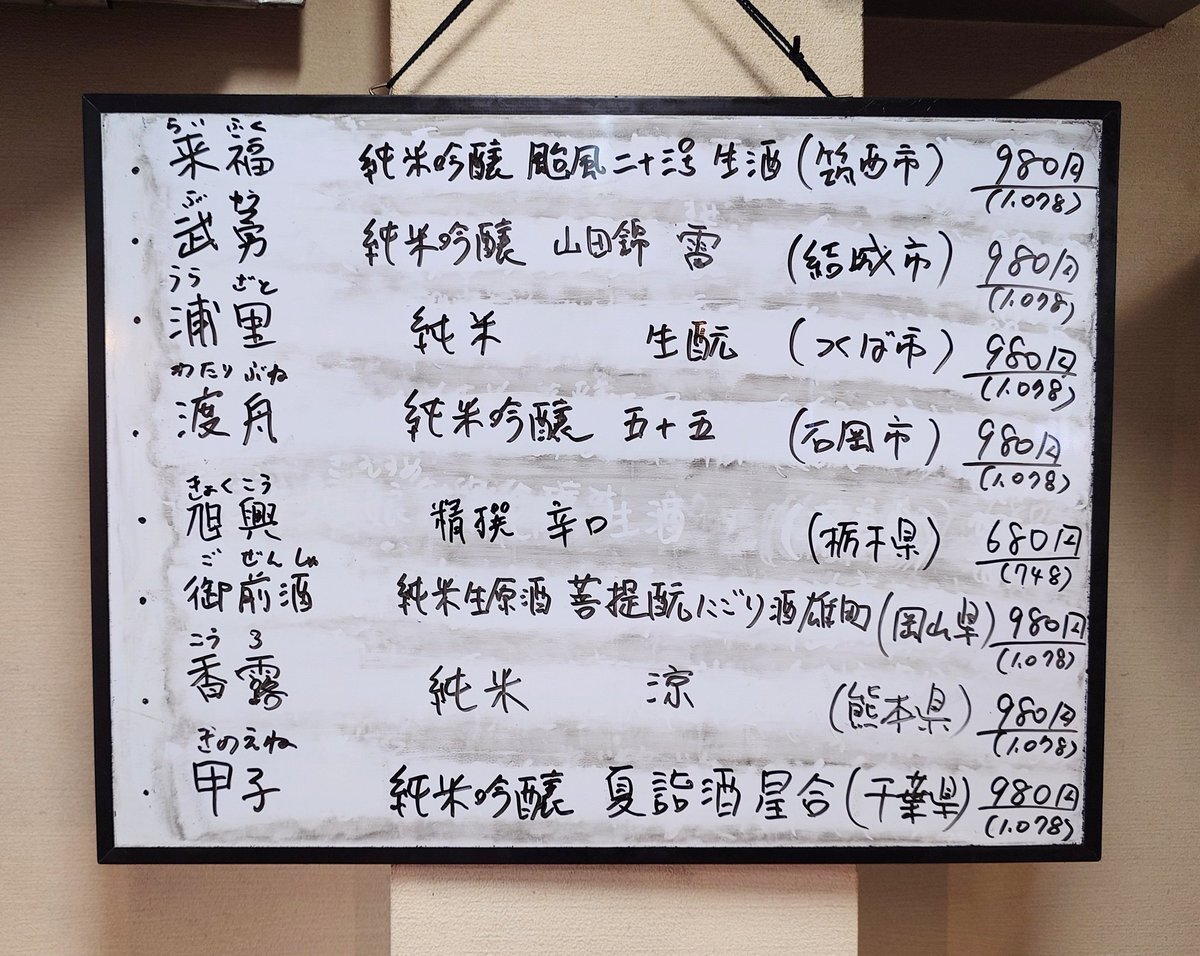 らい ふく
・来福 純米吟醸 颱風二十三号 生酒 (筑西市) 980円
(1.078)
ぶ ゆう
・武勇 純米吟醸 山田錦 雷 (結城市) 980円
(1.078)
うら ざと
・浦里 純米 生酛 (つくば市) 980円
(1.078)
わたり ぶね
・渡舟 純米吟醸 五十五 (石岡市) 980円
(1.078)
きょくこう
・旭興 精撰 辛口 (栃木県) 680円
(748)
ご ぜんしゅ
・御前酒 純米生原酒 菩提酛にごり酒雄町 (岡山県) 980円
(1.078)
こう ろ
・香露 純米 涼 (熊本県) 980円
(1.078)
きのえね
・甲子 純米吟醸 夏詣酒 星合 (千葉県) 980円
(1.078)